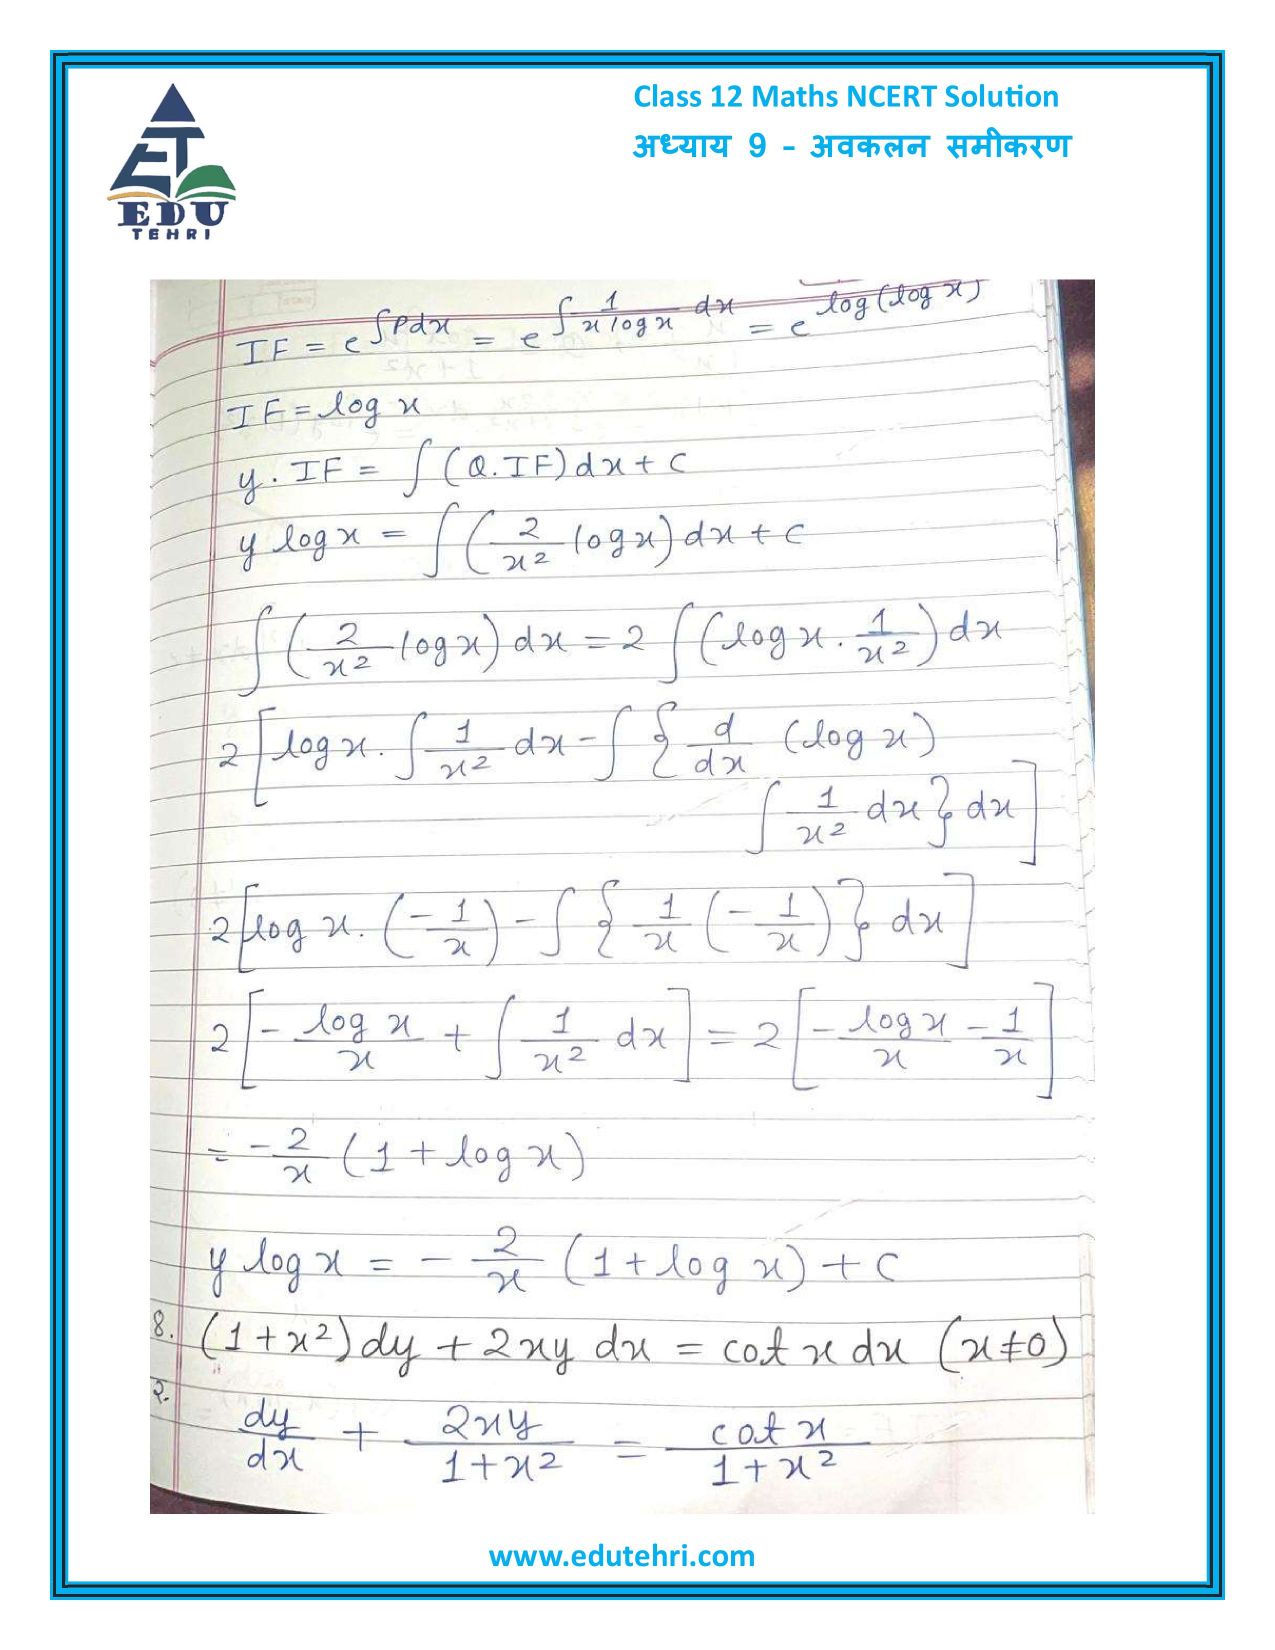 Class 12 Maths NCERT Solution
अध्याय 9 - अवकलन समीकरण
EDU
TEHRI
IF = e^∫Pdx = e^∫ 1/(x log x) dx = e^log(log x)
IF = log x
y . IF = ∫ (Q.IF) dx + C
y log x = ∫ (2/x² log x) dx + C
∫ (2/x² log x) dx = 2 ∫ (log x . 1/x²) dx
2 [log x . ∫ 1/x² dx - ∫ { d/dx (log x)
∫ 1/x² dx } dx ]
2 [log x . (-1/x) - ∫ { 1/x (-1/x) } dx ]
2 [ - log x/x + ∫ 1/x² dx ] = 2 [ - log x/x - 1/x ]
= -2/x (1 + log x)
y log x = - 2/x (1 + log x) + C
8. (1+x²) dy + 2xy dx = cot x dx (x≠0)
२. dy/dx + 2xy/(1+x²) = cot x/(1+x²)
www.edutehri.com